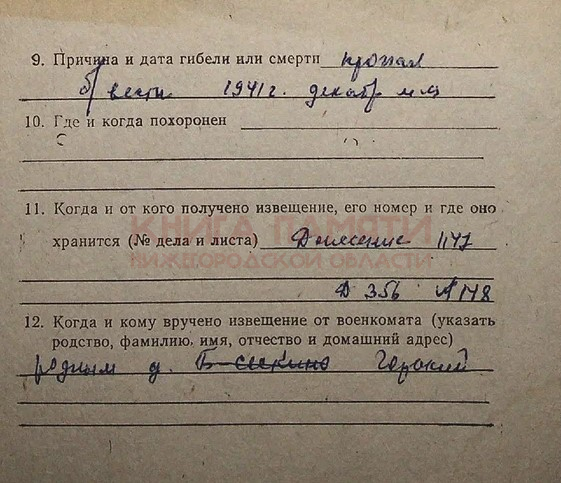 9. Причина и дата гибели или смерти пропал
б/вести 1941 г. декабр м-ц
10. Где и когда похоронен
11. Когда и от кого получено извещение, его номер и где оно
КНИГА ПАМЯТИ
хранится (№ дела и листа) Донесение 1147
НИЖЕГОРОДСКОЙ ОБЛАСТИ
Д 356 Л 178
12. Когда и кому вручено извещение от военкомата (указать
родство, фамилию, имя, отчество и домашний адрес)
родным д.